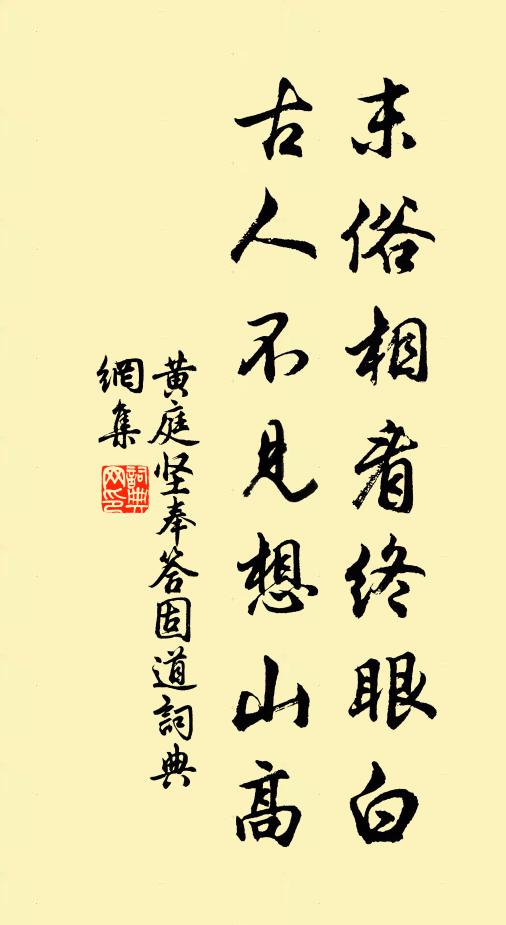 末俗相看终眼白
古人不见想山高
黄庭坚奉答固道詞典
網集
詞典網印